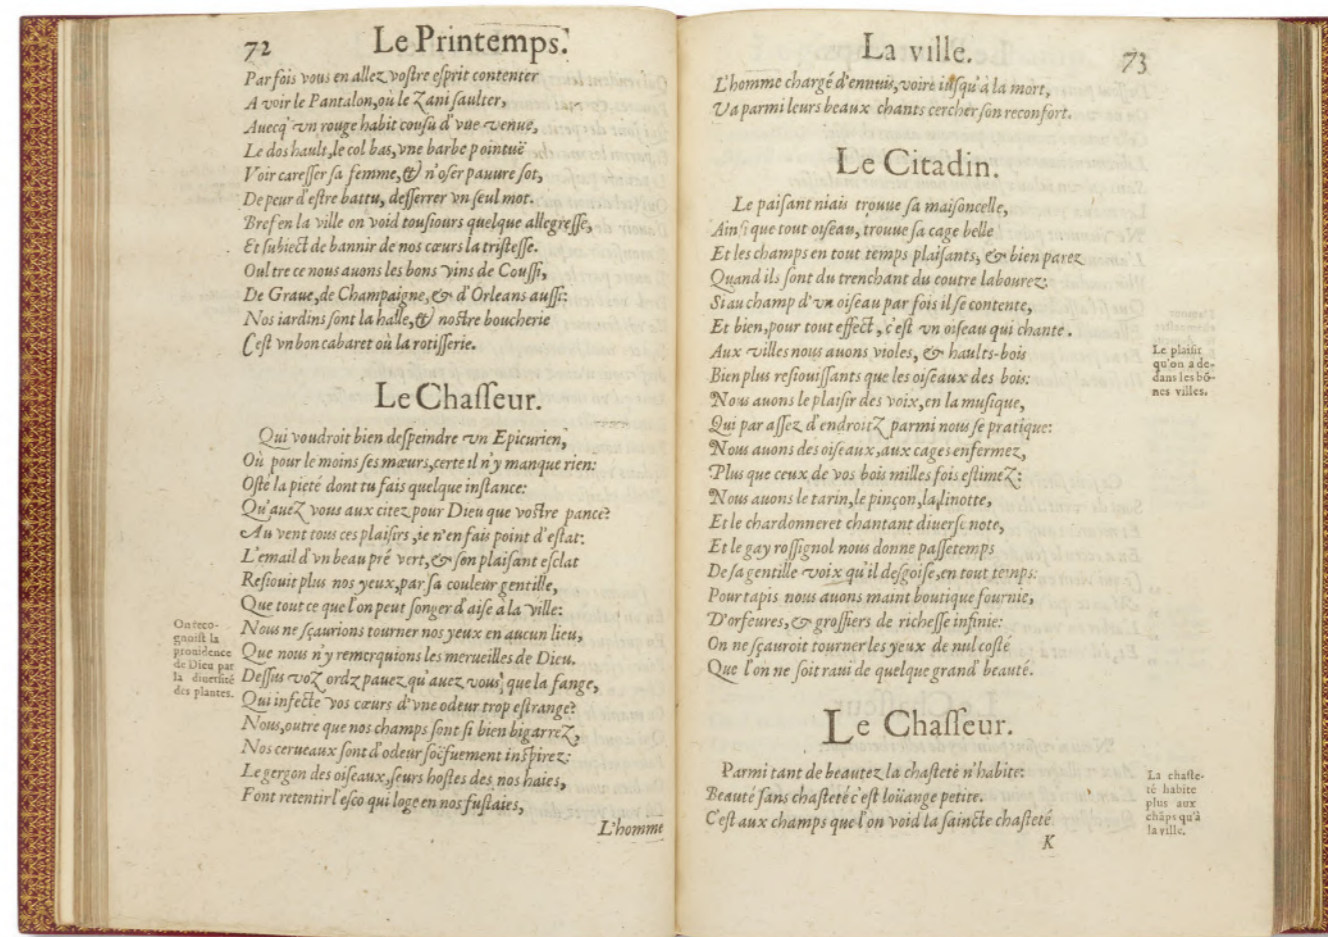 72
Le Printemps.
Par fois vous en allez voſtre eſprit contenter
A voir le Pantalon, où le Zani ſaulter,
Auecq' vn rouge habit couſu d'vne venue,
Le dos hault, le col bas, vne barbe pointuë
Voir careſſer ſa femme, & n'oſer pauure ſot,
De peur d'eſtre battu, deſſerrer vn ſeul mot.
Bref en la ville on void touſiours quelque allegreſſe,
Et ſubiect de bannir de nos cœurs la triſteſſe.
Oultre ce nous auons les bons vins de Couſſi,
De Graue, de Champaigne, & d'Orleans auſſi:
Nos iardins ſont la halle, & noſtre boucherie
C'eſt vn bon cabaret où la rotiſſerie.
Le Chaſſeur.
Qui voudroit bien deſpeindre vn Epicurien,
Où pour le moins ſes mœurs, certe il n'y manque rien:
Oſte la pieté dont tu fais quelque inſtance:
Qu'auez vous aux citez pour Dieu que voſtre pance?
Au vent tous ces plaiſirs, ie n'en fais point d'eſtat:
L'email d'vn beau pré vert, & ſon plaiſant eſclat
Reſiouit plus nos yeux, par ſa couleur gentille,
Que tout ce que l'on peut ſonger d'aiſe à la ville:
Nous ne ſçaurions tourner nos yeux en aucun lieu,
Que nous n'y remerquions les merueilles de Dieu.
Deſſus voz ordz pauez qu'auez vous, que la fange,
Qui infecte vos cœurs d'vne odeur trop eſtrange?
Nous, outre que nos champs ſont ſi bien bigarrez,
Nos cerueaux ſont d'odeur ſoëfuement inſpirez:
Le gergon des oiſeaux, ſeurs hoſtes des nos haies,
Font retentir l'eſco qui loge en nos fuſtaies,
L'homme
On reco-
gnoiſt la
prouidence
de Dieu par
la diuerſité
des plantes.
La ville.
73
L'homme chargé d'ennuis, voire iuſqu'à la mort,
Va parmi leurs beaux chants cercher ſon reconfort.
Le Citadin.
Le paiſant niais trouue ſa maiſoncelle,
Ainſi que tout oiſeau, trouue ſa cage belle
Et les champs en tout temps plaiſants, & bien parez
Quand ils ſont du trenchant du coutre labourez:
Si au champ d'vn oiſeau par fois il ſe contente,
Et bien, pour tout effect, c'eſt vn oiſeau qui chante.
Aux villes nous auons violes, & haults-bois
Bien plus reſiouiſſants que les oiſeaux des bois:
Nous auons le plaiſir des voix, en la muſique,
Qui par aſſez d'endroitz parmi nous ſe pratique:
Nous auons des oiſeaux, aux cages enfermez,
Plus que ceux de vos bois milles fois eſtimez:
Nous auons le tarin, le pinçon, la linotte,
Et le chardonneret chantant diuerſe note,
Et le gay roſſignol nous donne paſſetemps
De ſa gentille voix qu'il deſgoiſe, en tout temps:
Pour tapis nous auons maint boutique fournie,
D'orfeures, & groſſiers de richeſſe infinie:
On ne ſçauroit tourner les yeux de nul coſté
Que l'on ne ſoit raui de quelque grand' beauté.
Le plaiſir
qu'on a de-
dans les bõ-
nes villes.
Le Chaſſeur.
Parmi tant de beautez la chaſteté n'habite:
Beauté ſans chaſteté c'eſt loüange petite.
C'eſt aux champs que l'on void la ſaincte chaſteté
K
La chaſte-
té habite
plus aux
chãps qu'à
la ville.